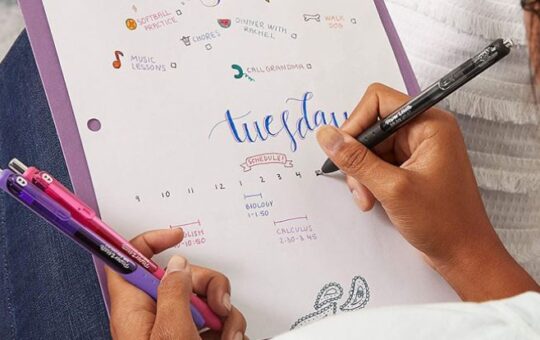 SOFTBALL
PRACTICE
DINNER WITH
RACHEL
WALK
DOG
CHORES
MUSIC
LESSONS
CALL GRANDMA
tuesday
SCHEDULE!
9 10 11 12 1 2 3 4
BIOLOGY
1-1:50
GLISH
-10:50
CALCULUS
2:30-3:45